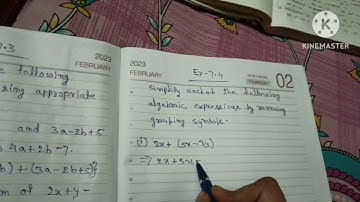 KINEMASTER
.3
2023
FEBRUARY
following
appropriate
and 3a-2b+5
4a+2b-7.
+ (3a-2b+5)}
of 2x+y-
2023
FEBRUARY
Ex-7.4
02
simplify each of the following
algebraic expressions by removing
grouping symbols.
(i) 2x+ (5x-3y)
⇒ 2x+5x-